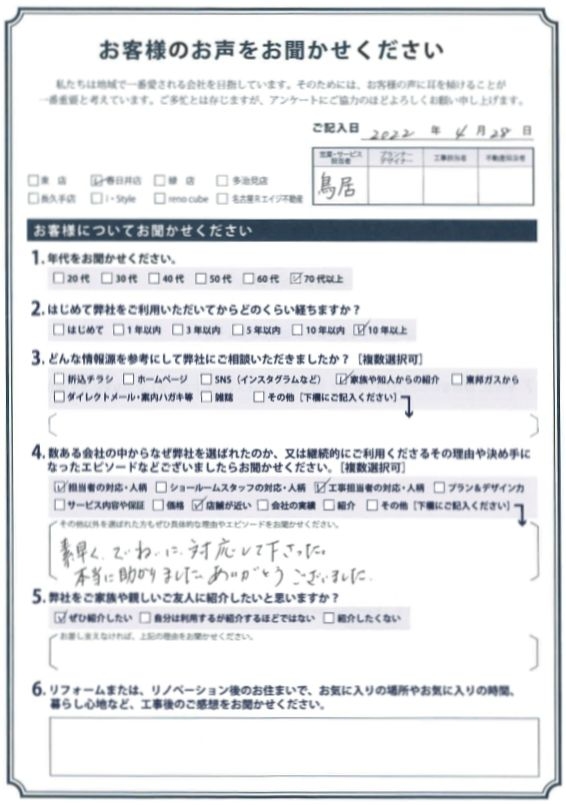 お客様のお声をお聞かせください
私たちは地域で一番愛される会社を目指しています。そのためには、お客様の声に耳を傾けることが
一番重要と考えています。ご多忙とは存じますが、アンケートにご協力のほどよろしくお願い申し上げます。
ご記入日 2022 年 4 月 28 日
営業・サービス担当者 プランナーデザイナー 工事担当者 不動産担当者
鳥居
□東 店 ☑春日井店 □緑 店 □多治見店
□長久手店 □i・Style □reno cube □名古屋Rエイジ不動産
お客様についてお聞かせください
1. 年代をお聞かせください。
□20代 □30代 □40代 □50代 □60代 ☑70代以上
2. はじめて弊社をご利用いただいてからどのくらい経ちますか?
□はじめて □1年以内 □3年以内 □5年以内 □10年以内 ☑10年以上
3. どんな情報源を参考にして弊社にご相談いただきましたか?[複数選択可]
□折込チラシ □ホームページ □SNS(インスタグラムなど) ☑家族や知人からの紹介 □東邦ガスから
□ダイレクトメール・案内ハガキ等 □雑誌 □その他[下欄にご記入ください]
4. 数ある会社の中からなぜ弊社を選ばれたのか、又は継続的にご利用くださるその理由や決め手に
なったエピソードなどございましたらお聞かせください。[複数選択可]
☑担当者の対応・人柄 □ショールームスタッフの対応・人柄 ☑工事担当者の対応・人柄 □プラン&デザイン力
□サービス内容や保証 □価格 ☑店舗が近い □会社の実績 □紹介 □その他[下欄にご記入ください]
その他以外を選ばれた方もぜひ具体的な理由やエピソードをお聞かせください。
素早く、ていねいに対応して下さった。
本当に助かりました ありがとうございました.
5. 弊社をご家族や親しいご友人に紹介したいと思いますか?
☑ぜひ紹介したい □自分は利用するが紹介するほどではない □紹介したくない
お差し支えなければ、上記の理由をお聞かせください。
6. リフォームまたは、リノベーション後のお住まいで、お気に入りの場所やお気に入りの時間、
暮らし心地など、工事後のご感想をお聞かせください。